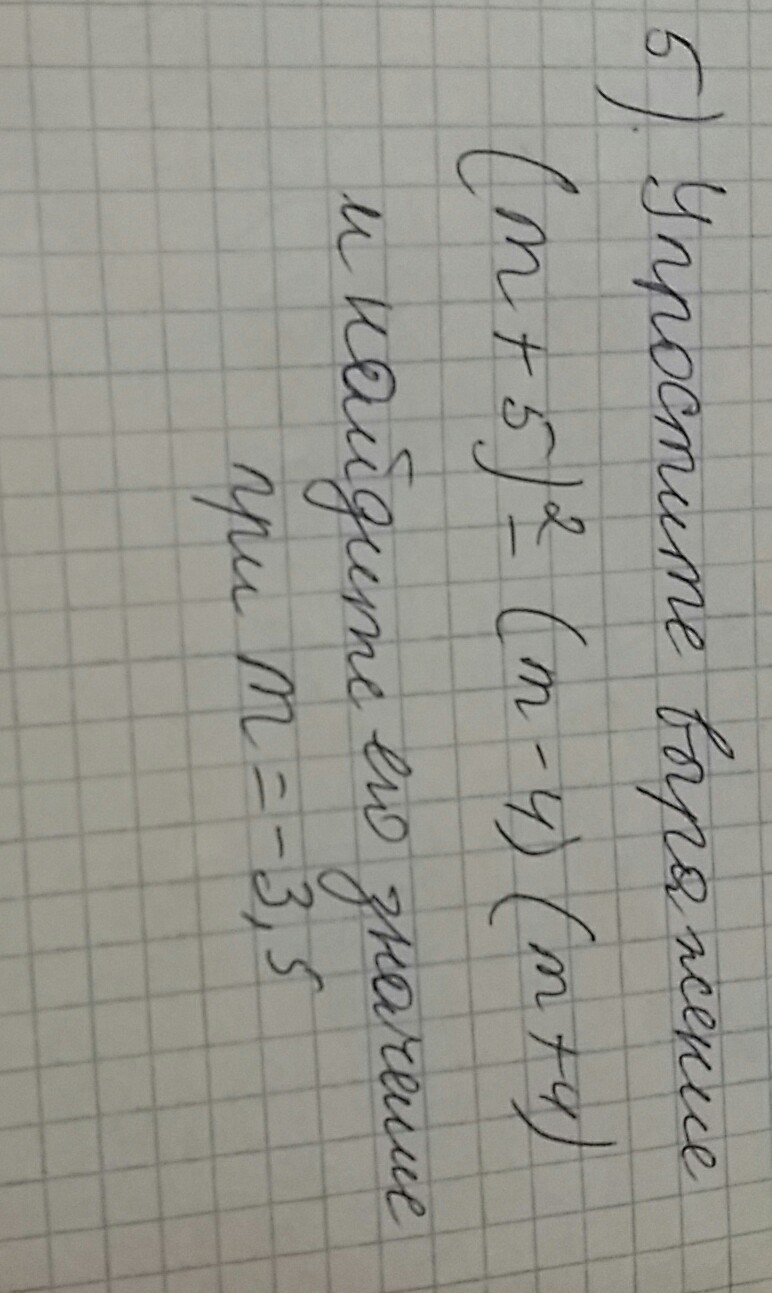 5). Упростите выражение
(m + 5)² - (m - 4) (m + 4)
и найдите его значение
при m = - 3,5